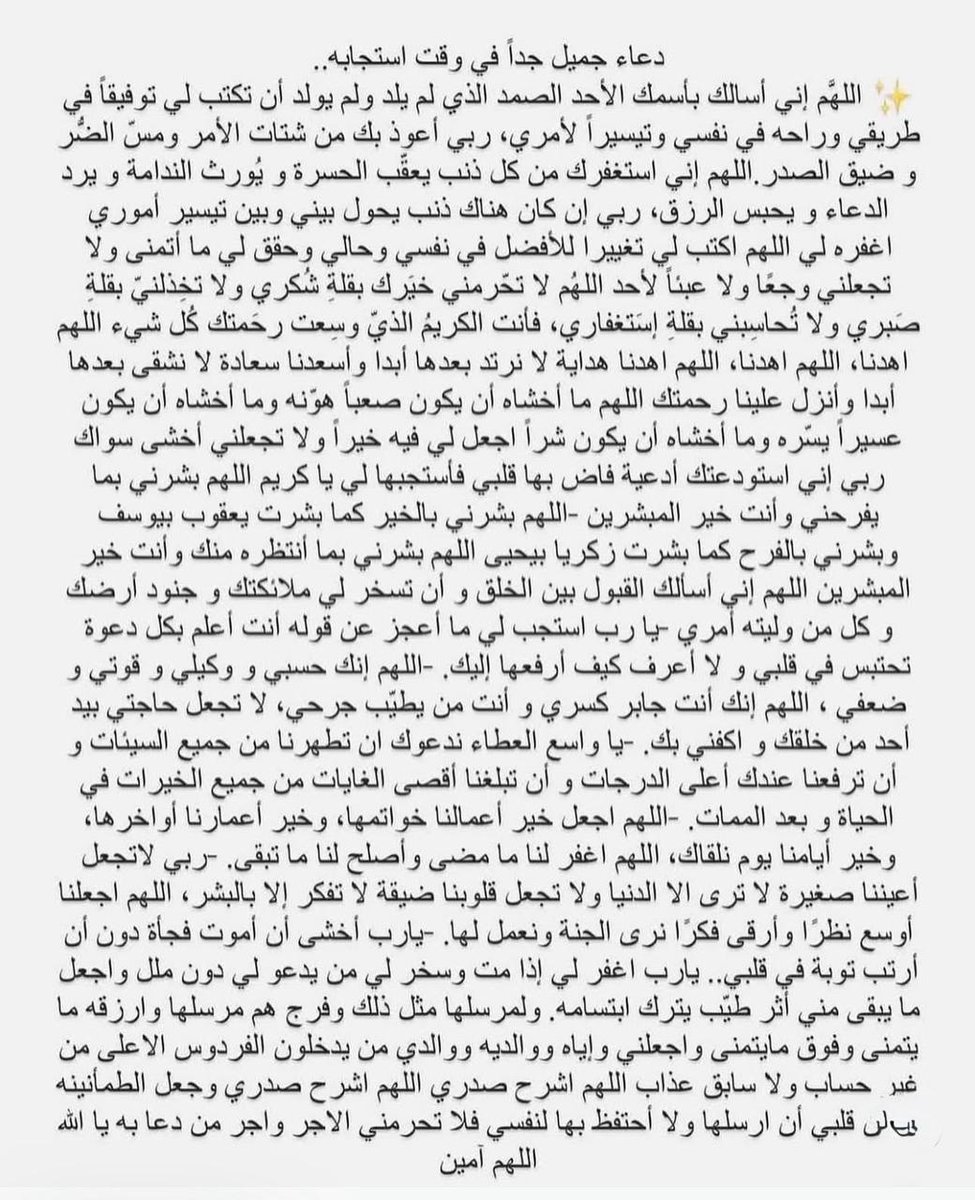 دعاء جميل جداً في وقت استجابه..
✨ اللهَّم إني أسالك بأسمك الأحد الصمد الذي لم يلد ولم يولد أن تكتب لي توفيقاً في
طريقي وراحه في نفسي وتيسيراً لأمري، ربي أعوذ بك من شتات الأمر ومسّ الضُّر
و ضيق الصدر.اللهم إني استغفرك من كل ذنب يعقّب الحسرة و يُورث الندامة و يرد
الدعاء و يحبس الرزق، ربي إن كان هناك ذنب يحول بيني وبين تيسير أموري
اغفره لي اللهم اكتب لي تغييرا للأفضل في نفسي وحالي وحقق لي ما أتمنى ولا
تجعلني وجعًا ولا عبئاً لأحد اللهُم لا تحّرمني خيَرك بقلةِ شُكري ولا تخِذلنيّ بقلةِ
صَبري ولا تُحاسِبني بقلةِ إستَغفاري، فأنت الكريمُ الذيّ وسِعت رحَمتك كُل شيء اللهم
اهدنا، اللهم اهدنا، اللهم اهدنا هداية لا نرتد بعدها أبدا وأسعدنا سعادة لا نشقى بعدها
أبدا وأنزل علينا رحمتك اللهم ما أخشاه أن يكون صعباً هوّنه وما أخشاه أن يكون
عسيراً يسّره وما أخشاه أن يكون شراً اجعل لي فيه خيراً ولا تجعلني أخشى سواك
ربي إني استودعتك أدعية فاض بها قلبي فأستجبها لي يا كريم اللهم بشرني بما
يفرحني وأنت خير المبشرين -اللهم بشرني بالخير كما بشرت يعقوب بيوسف
وبشرني بالفرح كما بشرت زكريا بيحيى اللهم بشرني بما أنتظره منك وأنت خير
المبشرين اللهم إني أسألك القبول بين الخلق و أن تسخر لي ملائكتك و جنود أرضك
و كل من وليته أمري -يا رب استجب لي ما أعجز عن قوله أنت أعلم بكل دعوة
تحتبس في قلبي و لا أعرف كيف أرفعها إليك. -اللهم إنك حسبي و وكيلي و قوتي و
ضعفي ، اللهم إنك أنت جابر كسري و أنت من يطيّب جرحي، لا تجعل حاجتي بيد
أحد من خلقك و اكفني بك. -يا واسع العطاء ندعوك ان تطهرنا من جميع السيئات و
أن ترفعنا عندك أعلى الدرجات و أن تبلغنا أقصى الغايات من جميع الخيرات في
الحياة و بعد الممات. -اللهم اجعل خير أعمالنا خواتمها، وخير أعمارنا أواخرها،
وخير أيامنا يوم نلقاك، اللهم اغفر لنا ما مضى وأصلح لنا ما تبقى. -ربي لاتجعل
أعيننا صغيرة لا ترى الا الدنيا ولا تجعل قلوبنا ضيقة لا تفكر إلا بالبشر، اللهم اجعلنا
أوسع نظرًا وأرقى فكرًا نرى الجنة ونعمل لها. -يارب أخشى أن أموت فجأة دون أن
أرتب توبة في قلبي.. يارب اغفر لي إذا مت وسخر لي من يدعو لي دون ملل واجعل
ما يبقى مني أثر طيّب يترك ابتسامه. ولمرسلها مثل ذلك وفرج هم مرسلها وارزقه ما
يتمنى وفوق مايتمنى واجعلني وإياه ووالديه ووالدي من يدخلون الفردوس الاعلى من
غير حساب ولا سابق عذاب اللهم اشرح صدري اللهم اشرح صدري وجعل الطمأنينه
قلبي أن ارسلها ولا أحتفظ بها لنفسي فلا تحرمني الاجر واجر من دعا به يا الله
اللهم آمين